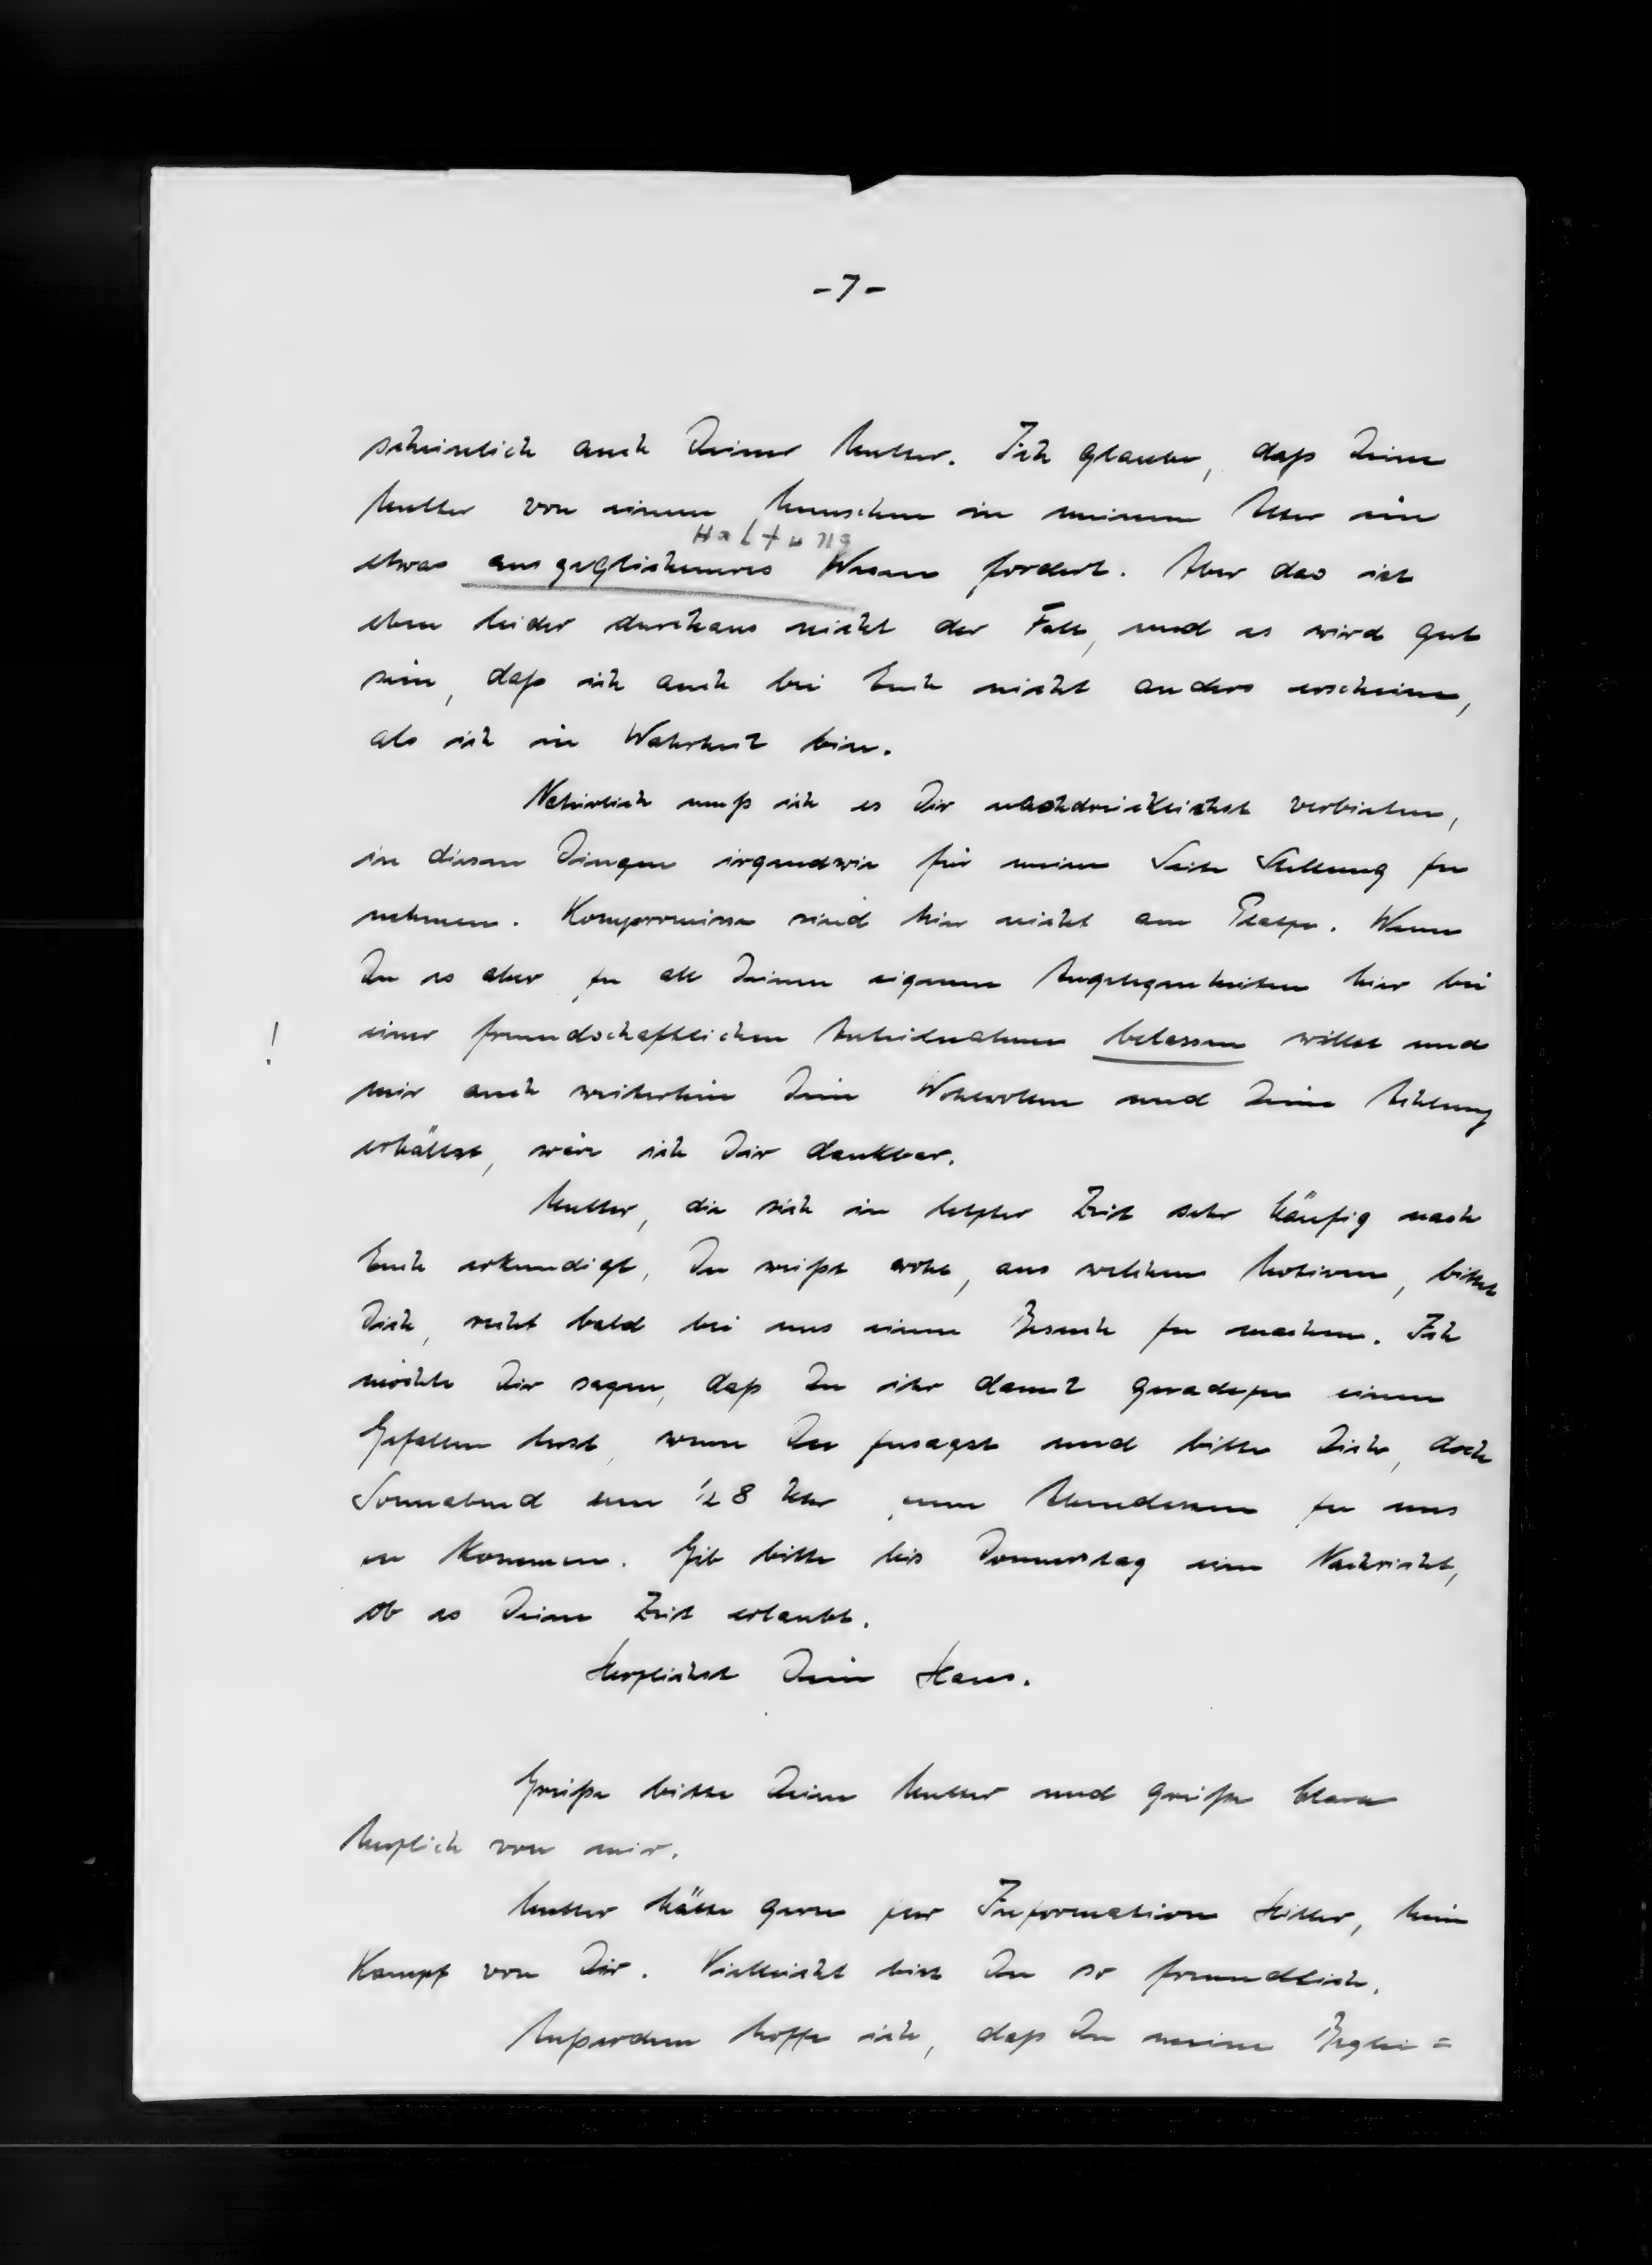 -7-
scheinlich auch Deiner Mutter. Ich glaube, daß Deine
Mutter von einem Menschen in meinem Alter ein
Haltung
etwas ausgeglicheneres Wesen fordert. Aber das ist
eben leider durchaus nicht der Fall, und es wird gut
sein, daß ich auch bei Euch nicht anders erscheine,
als ich in Wahrheit bin.
Natürlich muß ich es Dir nachdrücklichst verbieten,
in diesen Dingen irgendwie für meine Seite Stellung zu
nehmen. Kompromisse sind hier nicht am Platze. Wenn
Du es aber zu all Deinen eigenen Angelegenheiten hier bei
!
einer freundschaftlichen Anteilnahme belassen willst und
mir auch weiterhin Dein Wohlwollen und Deine Achtung
erhältst, wäre ich Dir dankbar.
Mutter, die sich in letzter Zeit sehr häufig nach
Euch erkundigt, Du weißt wohl, aus welchen Motiven, bittet
Dich, recht bald bei uns einen Besuch zu machen. Ich
möchte Dir sagen, daß Du ihr damit geradezu einen
Gefallen tust, wenn Du zusagst und bitte Dich, doch
Sonnabend um ½ 8 Uhr zum Abendessen zu uns
zu kommen. Gib bitte bis Donnerstag eine Nachricht,
ob es Deine Zeit erlaubt.
Herzlichst Dein Hans.
Grüße bitte Deine Mutter und grüße Clara
herzlich von mir.
Mutter hätte gern zur Information Hitler, Mein
Kampf von Dir. Vielleicht bist Du so freundlich.
Außerdem hoffe ich, daß Du meine Beglei=